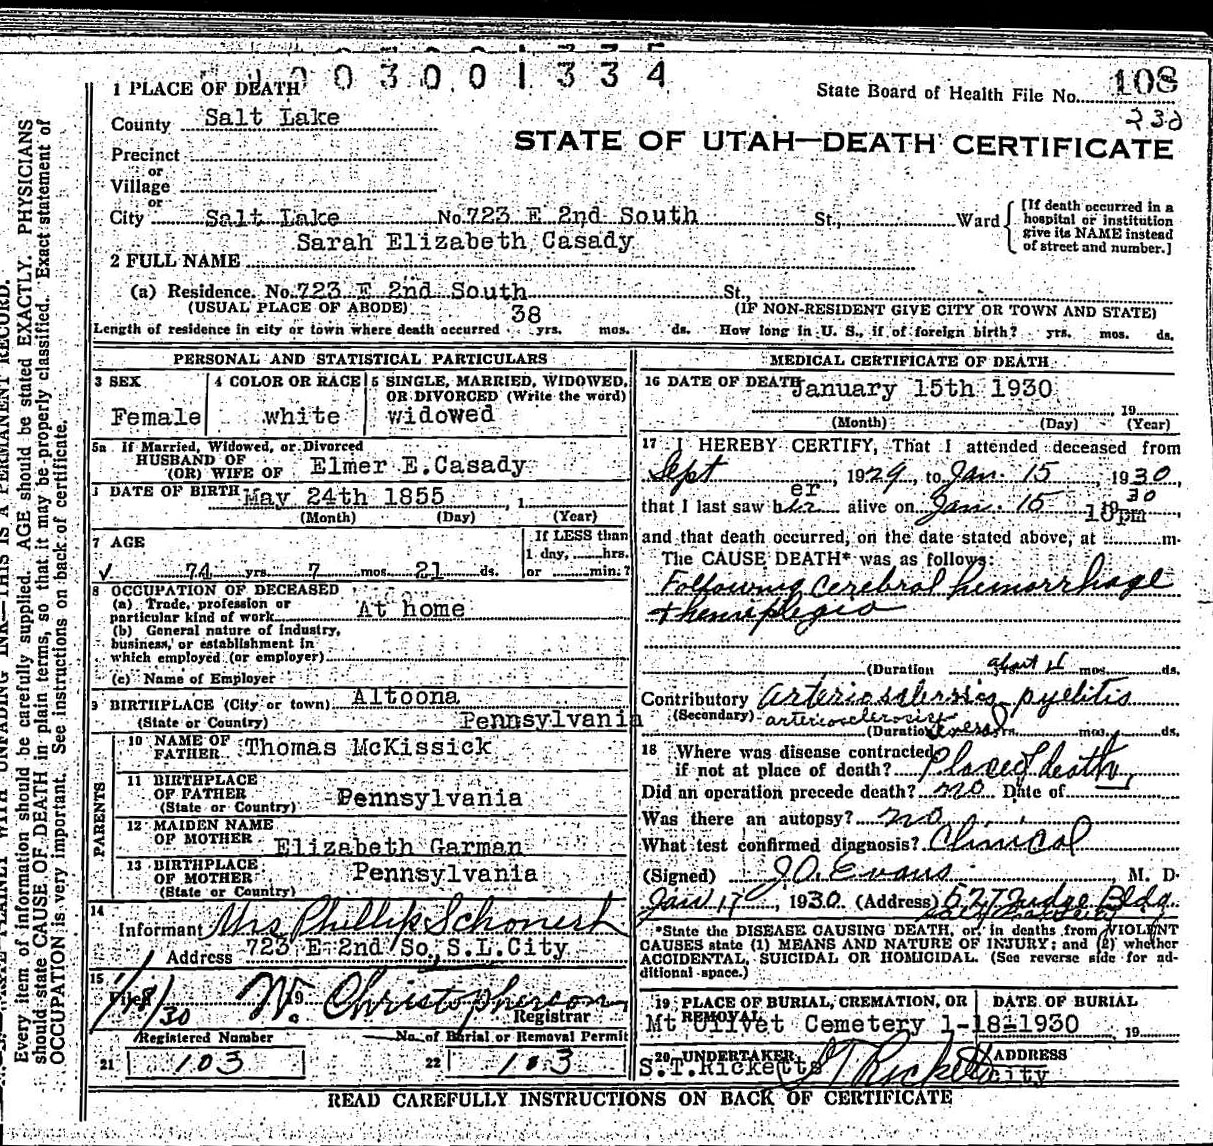 0 0 3 0 0 1 3 3 4
1 PLACE OF DEATH
State Board of Health File No. 108
County Salt Lake
230
STATE OF UTAH—DEATH CERTIFICATE
Precinct
or
Village
or
City Salt Lake No. 723 E 2nd South St., Ward
[If death occurred in a
hospital or institution
give its NAME instead
of street and number.]
Sarah Elizabeth Casady
2 FULL NAME
(a) Residence. No. 723 E 2nd South St.,
(USUAL PLACE OF ABODE) (IF NON-RESIDENT GIVE CITY OR TOWN AND STATE)
Length of residence in city or town where death occurred 38 yrs. mos. ds. How long in U. S., if of foreign birth? yrs. mos. ds.
PERSONAL AND STATISTICAL PARTICULARS
3 SEX
Female
4 COLOR OR RACE
white
5 SINGLE, MARRIED, WIDOWED,
OR DIVORCED (Write the word)
widowed
5a If Married, Widowed, or Divorced
HUSBAND OF
(OR) WIFE OF Elmer E.Casady
DATE OF BIRTH May 24th 1855, 1
(Month) (Day) (Year)
7 AGE
If LESS than
1 day, hrs.
74 yrs. 7 mos. 21 ds. or min.?
8 OCCUPATION OF DECEASED
(a) Trade, profession or
particular kind of work At home
(b) General nature of industry,
business, or establishment in
which employed (or employer)
(c) Name of Employer
9 BIRTHPLACE (City or town) Altoona
(State or Country) Pennsylvania
PARENTS
10 NAME OF
FATHER Thomas McKissick
11 BIRTHPLACE
OF FATHER
(State or Country) Pennsylvania
12 MAIDEN NAME
OF MOTHER Elizabeth Garman
13 BIRTHPLACE
OF MOTHER Pennsylvania
(State or Country)
14
Informant Mrs Phillip Schonesh
Address 723 E 2nd So, S.L.City
15
Filed 1/18/30 19 W. Christopherson
Registrar
Registered Number No. of Burial or Removal Permit
21 103 22 103
MEDICAL CERTIFICATE OF DEATH
16 DATE OF DEATH January 15th 1930
, 19
(Month) (Day) (Year)
17 I HEREBY CERTIFY, That I attended deceased from
Sept, 1929, to Jan. 15, 1930,
er 30
that I last saw her alive on Jan. 15 19
10pm
and that death occurred, on the date stated above, at m.
The CAUSE DEATH* was as follows:
Following Cerebral hemorrhage
+ hemiplegia
(Duration about mos. ds.
Contributory arteriosclerosis pyelitis
(Secondary) arteriosclerosis
(Duration several yrs. mos. ds.
18 Where was disease contracted
if not at place of death? Place of death
Did an operation precede death? no Date of
Was there an autopsy? no
What test confirmed diagnosis? Clinical
(Signed) J.O. Evans, M. D.
Jan 17, 1930. (Address) 527 Judge Bldg
Salt Lake City
*State the DISEASE CAUSING DEATH, or, in deaths from VIOLENT
CAUSES state (1) MEANS AND NATURE OF INJURY; and (2) whether
ACCIDENTAL, SUICIDAL OR HOMICIDAL. (See reverse side for ad-
ditional space.)
19 PLACE OF BURIAL, CREMATION, OR
REMOVAL
DATE OF BURIAL
Mt Olivet Cemetery 1-18-1930, 19
20 UNDERTAKER ADDRESS
S.T.Ricketts ST Ricketts City
READ CAREFULLY INSTRUCTIONS ON BACK OF CERTIFICATE
Every item of information should be carefully supplied. AGE should be stated EXACTLY. PHYSICIANS
should state CAUSE OF DEATH in plain terms, so that it may be properly classified. Exact statement of
OCCUPATION is very important. See instructions on back of certificate.
WITH UNFADING INK—THIS IS A PERMANENT RECORD.